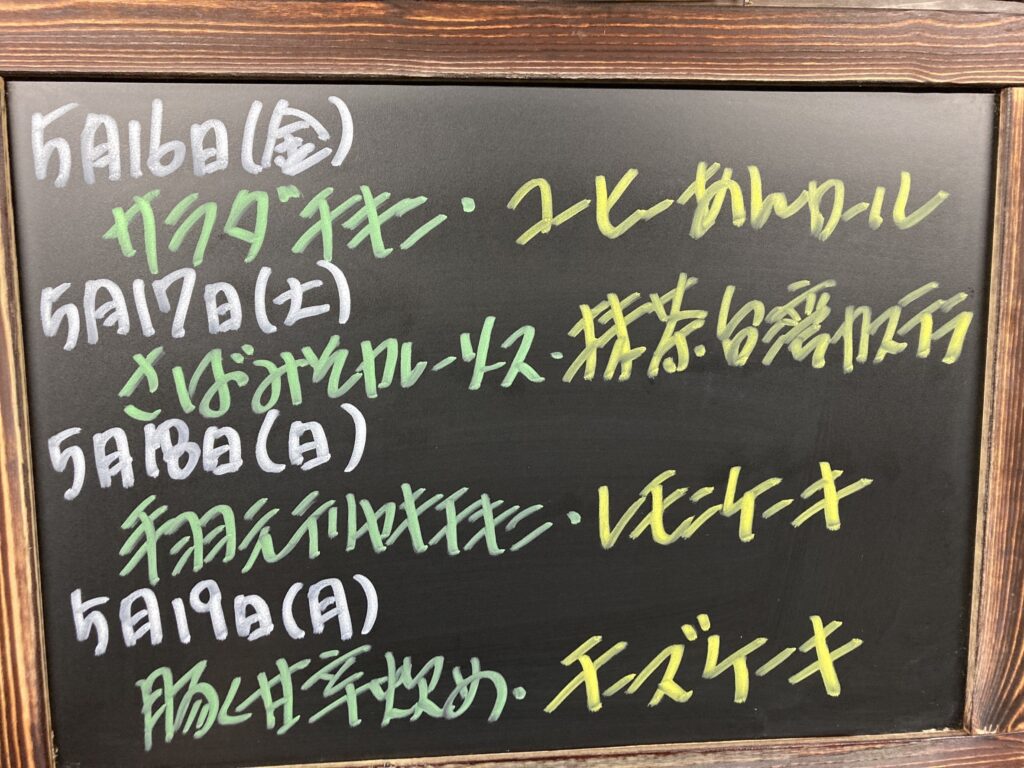 5月16日(金)
サラダチキン・コーヒーあんロール
5月17日(土)
さばみそカレーソース・抹茶台湾カステラ
5月18日(日)
手羽元テリヤキチキン・レモンケーキ
5月19日(月)
豚甘辛炒め・チーズケーキ